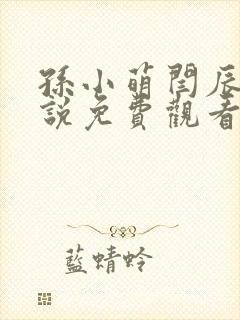 孫小萌閆辰
說免費觀看
藍蜻蛉